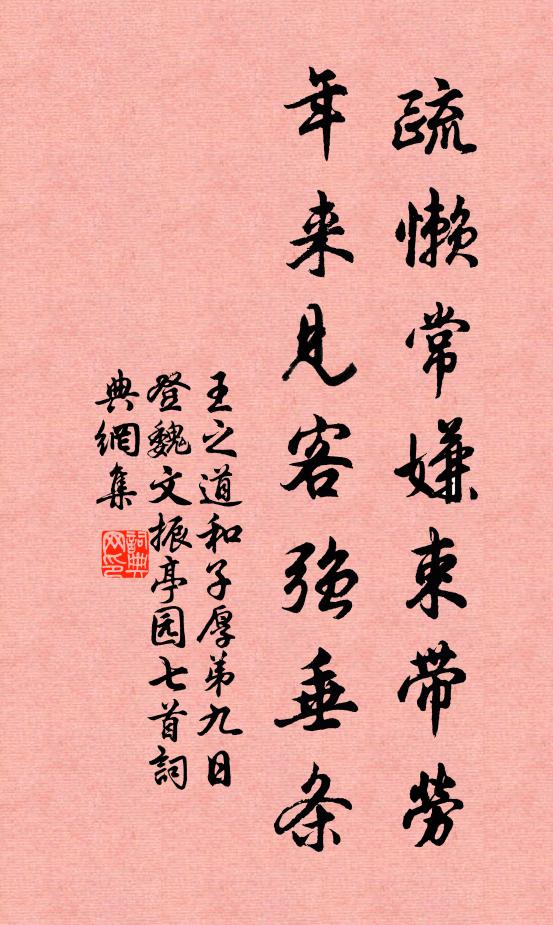 疏懒常嫌束带劳
年来见客强垂条
王之道和子厚弟九日
登魏文振亭园七首詞
典網集
詞典網印